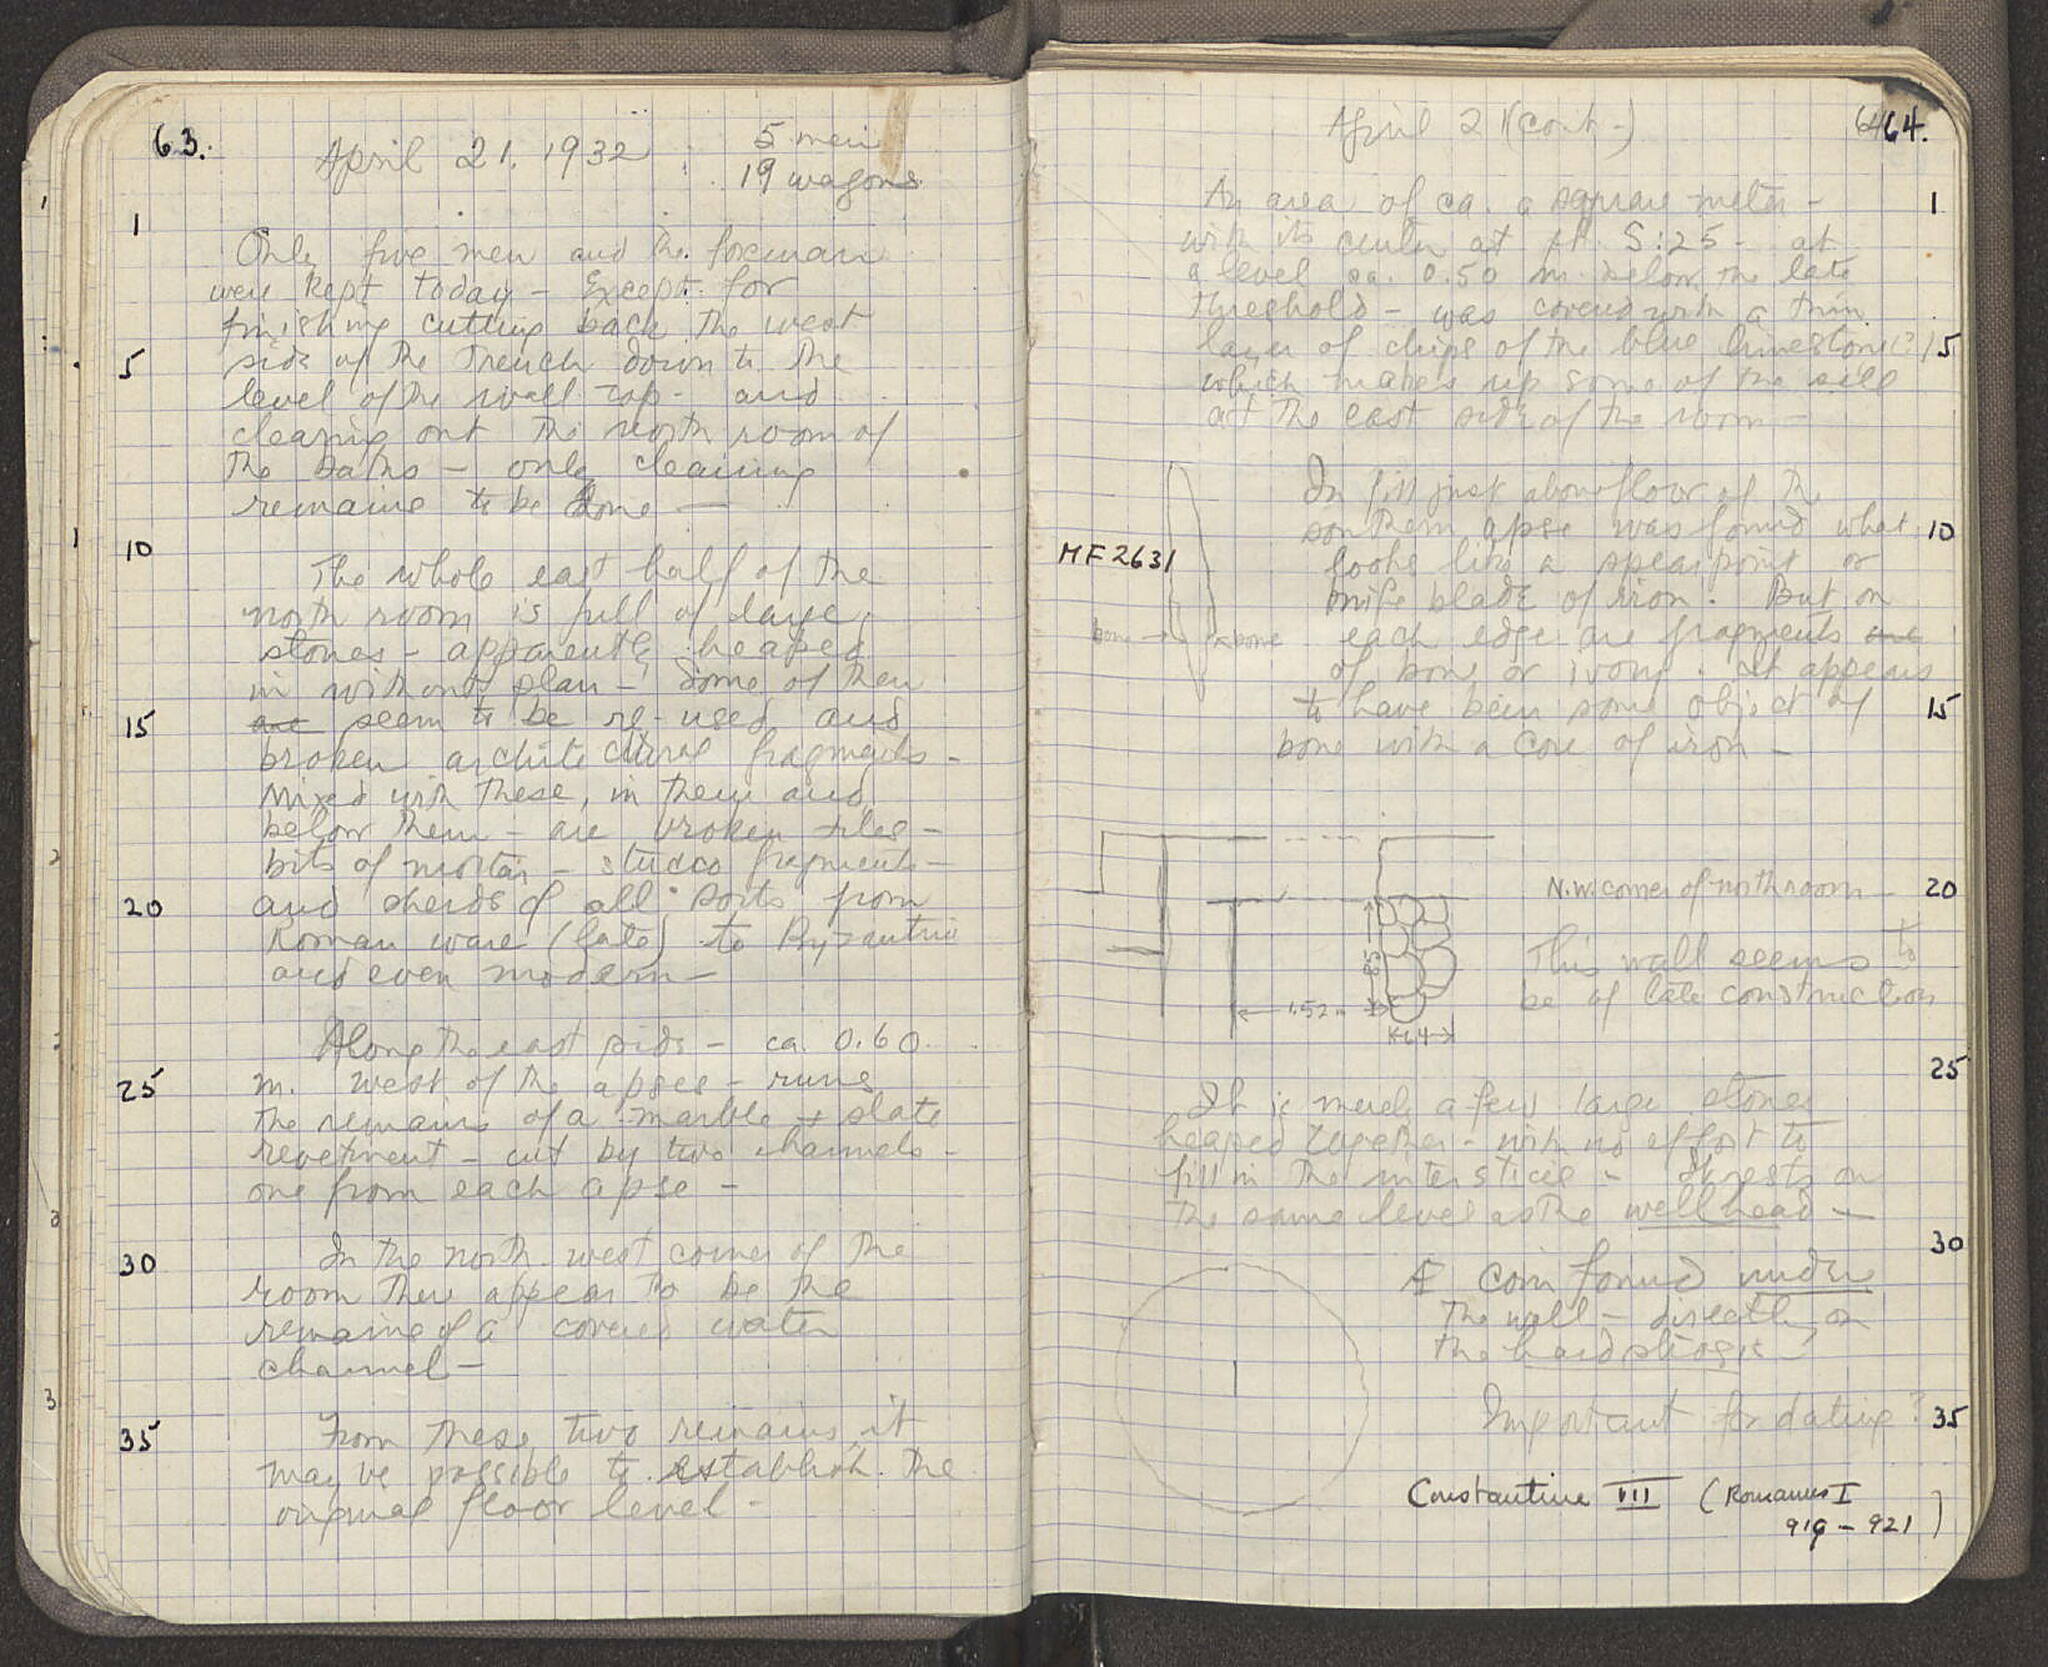 63.
April 21, 1932
5 men
19 wagons
1
Only five men and the foreman
were kept today - Except for
finishing cutting back the west
side of the trench down to the
5
level of the wall top - and
clearing out the north room of
the baths - only cleaning
remains to be done -
10
The whole east half of the
north room is full of large
stones - apparently heaped
in without plan - Some of them
are seem to be re-used and
15
broken architectural fragments -
Mixed with these, in them and
below them - are broken tiles -
bits of mortar - stucco fragments -
and sherds of all sorts from
20
Roman ware (late) to Byzantine
and even modern -
Along the east side - ca. 0.60
m. west of the apses - runs
25
the remains of a marble + slate
revetment - cut by two channels -
one from each apse -
In the north west corner of the
30
room there appear to be the
remains of a covered water
channel -
From these two remains it
35
may be possible to establish the
original floor level -
April 21 (cont-)
64
64.
An area of ca. a square meter -
1
with its center at pt. S:25 - at
a level ca. 0.50 m. below the late
threshold - was covered with a thin
layer of chips of the blue limestone(?)
5
which makes up some of the sill
at the east side of the room -
In fill just above floor of the
southern apse was found what
10
MF 2631
looks like a spear point or
knife blade of iron. But on
bone → ← bone
each edge are fragments are
of bone or ivory. It appears
to have been some object of
15
bone with a core of iron -
N.W. corner of north room -
20
This wall seems to
be of late construction
.85
1.52 m
.64
25
It is merely a few large stones
heaped together - with no effort to
fill in the interstices - It rests on
the same level as the well head -
30
Æ Coin found under
the wall - directly on
the hard
Important for dating?
35
Constantine VII (Romanus I
919 - 921)